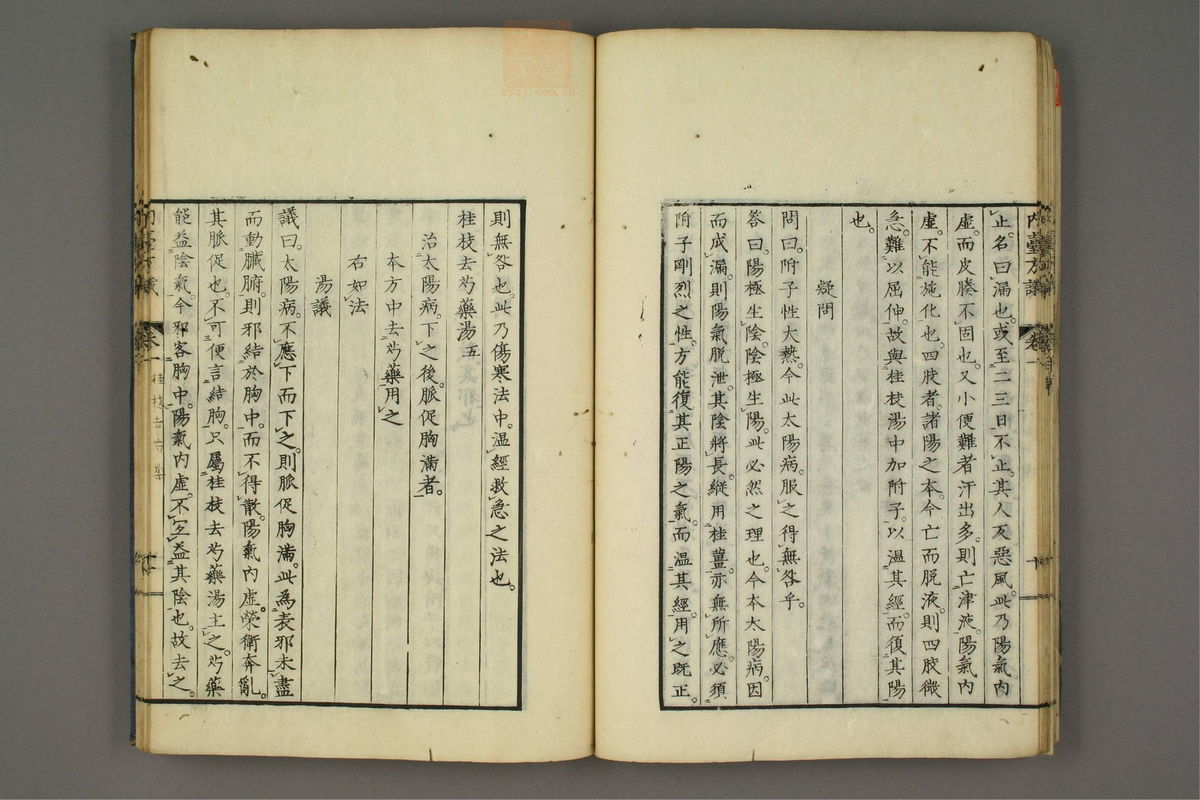 內臺方議 卷一
止名曰漏也或至二三日不止其人又惡風此乃陽氣內
虛而皮腠不固也又小便難者汗出多則亡津液陽氣內
虛不能施化也四肢者諸陽之本今亡而脫液則四肢微
急難以屈伸故與桂枝湯中加附子以溫其經而復其陽
也
疑問
問曰附子性大熱今此太陽病服之得無咎乎
答曰陽極生陰陰極生陽此必然之理也今本太陽病因
而成漏則陽氣脫泄其陰將長縱用桂薑亦無所應必須
附子剛烈之性方能復其正陽之氣而溫其經用之既正
則無咎也此乃傷寒法中溫經救急之法也
桂枝去芍藥湯五
治太陽病下之後脈促胸滿者
本方中去芍藥用之
右如法
湯議
議曰太陽病不應下而下之則脈促胸滿此為表邪未盡
而動臟腑則邪結於胸中而不得散陽氣內虛榮衛奔亂
其脈促也不可便言結胸只屬桂枝去芍藥湯主之芍藥
能益陰氣今邪客胸中陽氣內虛不宜益其陰也故去之
卷一